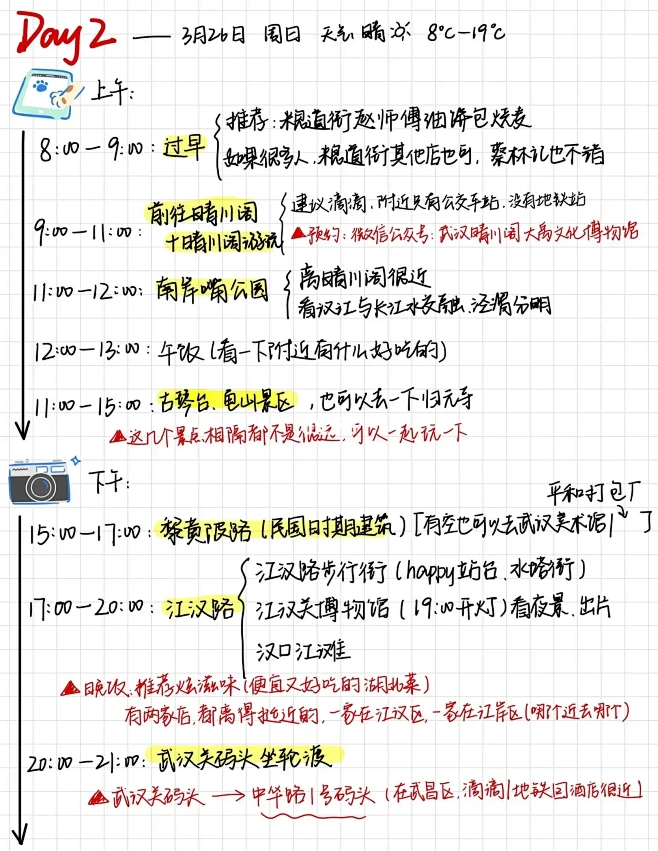 Day2 —— 3月26日 周日 天气晴 8℃-19℃
上午:
8:00-9:00: 过早
推荐:粮道街赵师傅油饼包烧麦
如果很多人,粮道街其他店也可,蔡林记也不错
9:00-11:00: 前往晴川阁
+晴川阁游玩
建议滴滴,附近只有公交车站,没有地铁站
▲预约:微信公众号:武汉晴川阁大禹文化博物馆
11:00-12:00: 南岸嘴公园
离晴川阁很近
看汉江与长江水交融,泾渭分明
12:00-13:00: 午饭(看一下附近有什么好吃的)
11:00-15:00: 古琴台、龟山景区,也可以去一下归元寺
▲这几个景点相隔都不是很远,可以一起玩一下
下午:
平和打包厂
15:00-17:00: 黎黄陂路(民国时期建筑)[有空也可以去武汉美术馆/]
17:00-20:00: 江汉路
江汉路步行街(happy站台、水塔街)
江汉关博物馆(19:00开灯)看夜景、出片
汉口江滩
▲晚饭:推荐炫滋味(便宜又好吃的湖北菜)
有两家店,都离得挺近的,一家在江汉区,一家在江岸区(哪个近去哪个)
20:00-21:00: 武汉关码头坐轮渡
▲武汉关码头→中华路1号码头(在武昌区,滴滴/地铁回酒店很近)